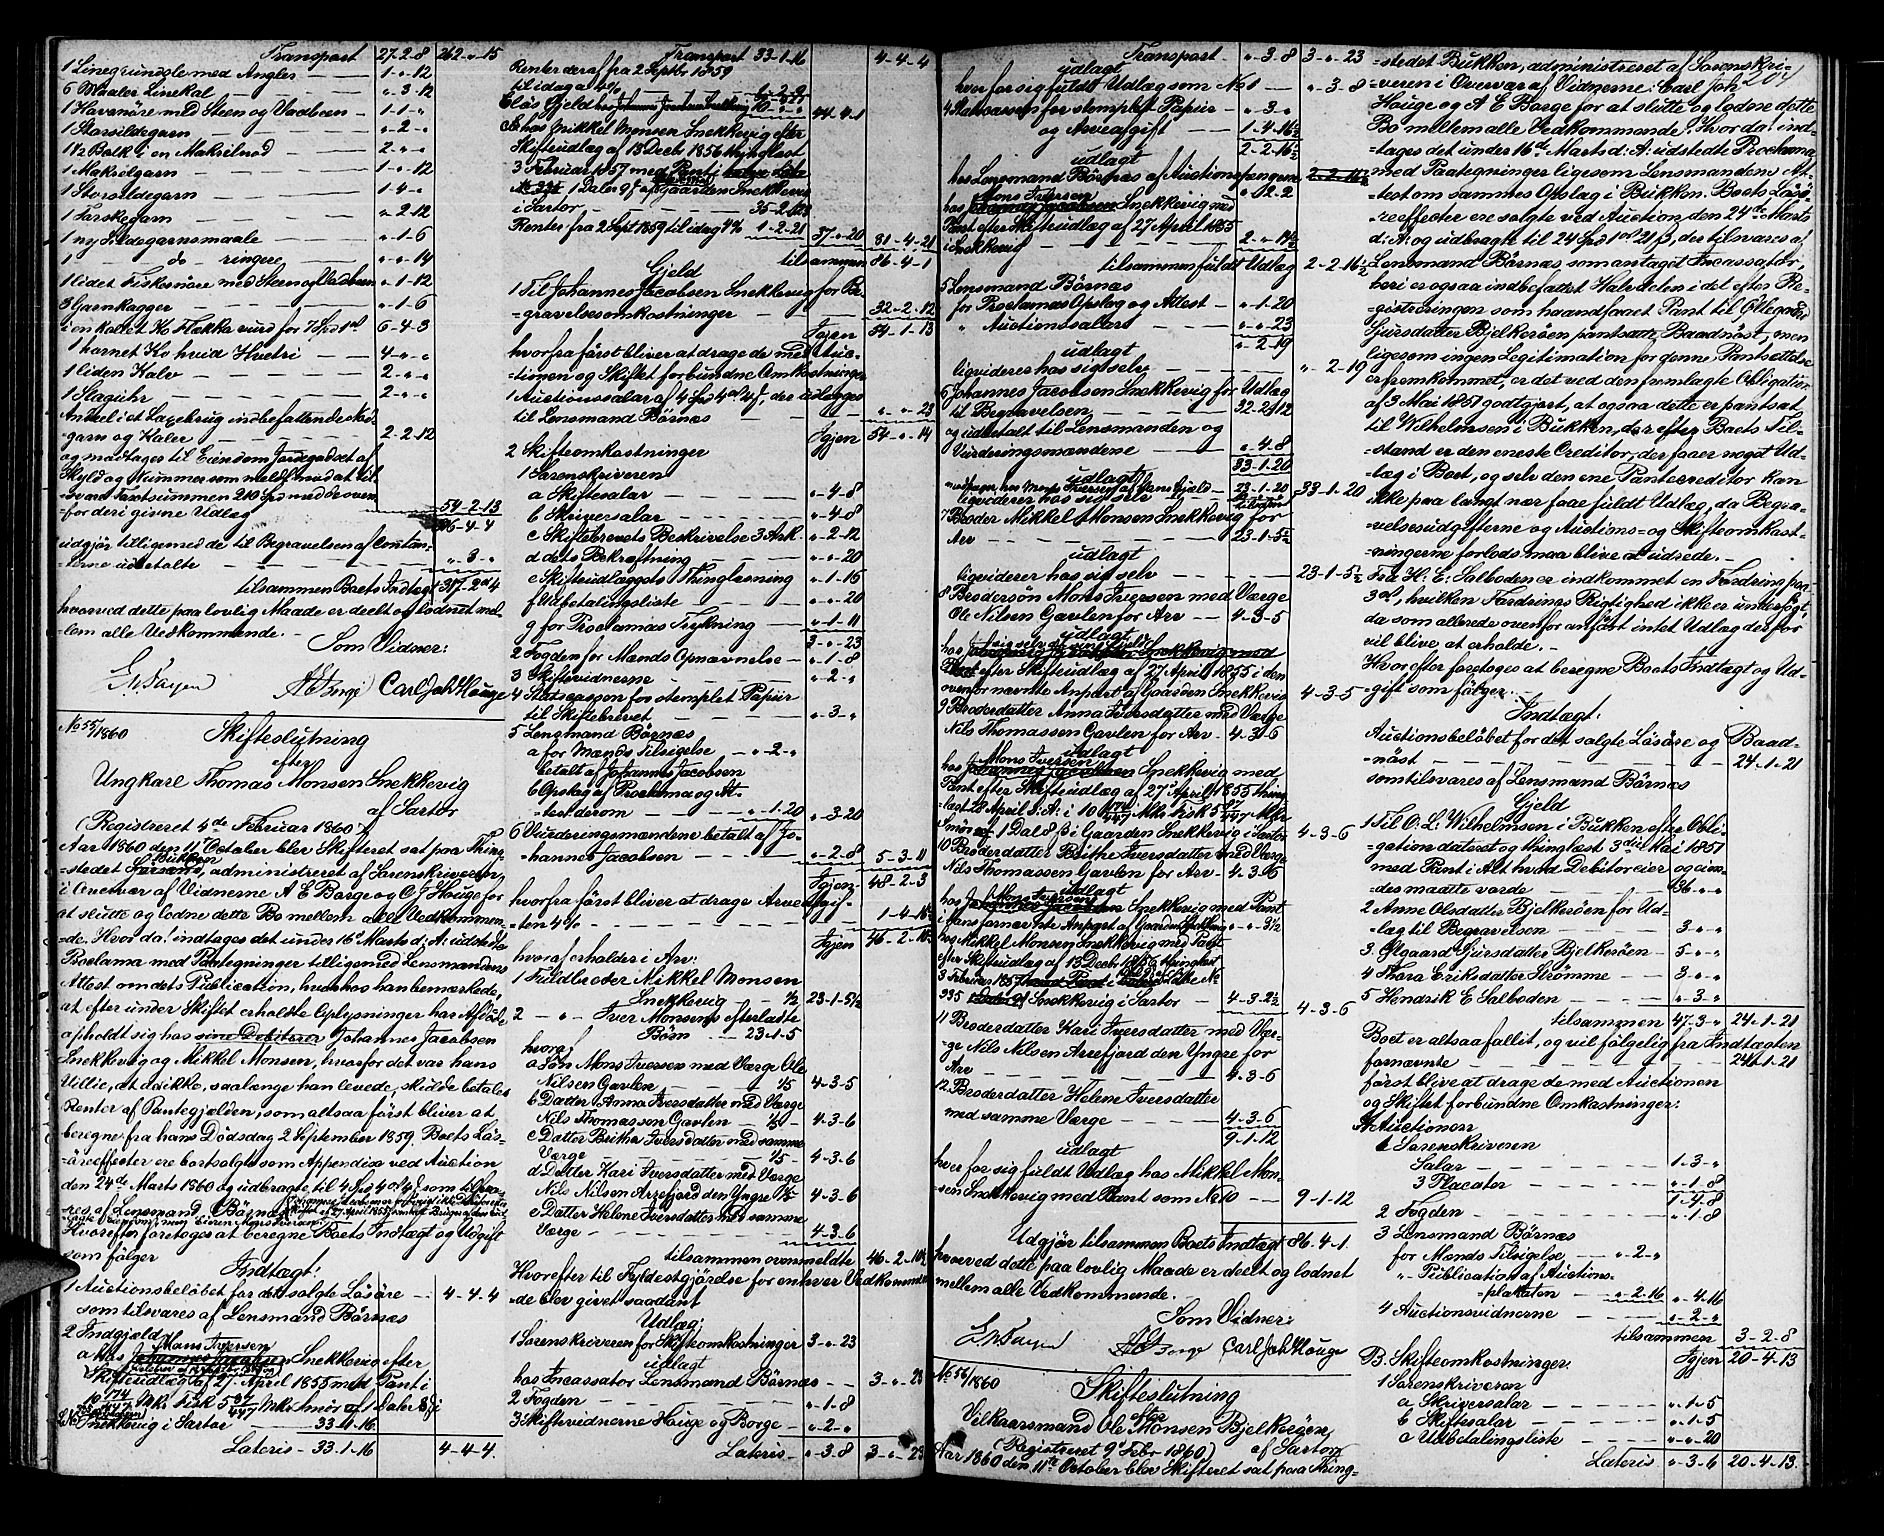 Transport 27-2-8 262-"-15
1 Linegrundsle med Angler 1-"-12
6 Maaler Linekal "-3-12
1 Havsnöre med Steen og Vadbeen 1-1-"
1 Storsildegarn "-2-"
1/2 Bolk i en Makrelnod 2-"-"
1 Makrelgarn "-1-12
1 Storsildegarn 1-4-"
1 Torskegarn "-2-12
1 ny Sildegarnsmaale "-1-6
1 do ringere "-"-14
1 lidet Fiskesnöre med Steen og Vadbeen "-1-12
3 Garnkagger "-1-6
1 hornet Ko hvid Hvetri 4-"-"
1 liden Kalv 2-"-"
1 Slaguhr 2-"-"
-garn og Kaler 2-2-12
og modtages til Eiendom Jordegodset af
Skyld og Nummer som meldt mod at til-
-svare Taxtsummen 210 Spd med de oven-
-for deri givne Udlæg 54-2-13
86-4-4
udgjör tilligemed de til Begravelsen af Contan-
-terne udbetalte "-3-"
tilsammen Boets Indtægt 317-2-4
hvorved dette paa lovlig Maade er deelt og lodnet mel-
-lem alle Vedkommende.-
Som Vidner:
AEBorge Carl Joh Houge
No 55/1860 Skifteslutning
efter
Ungkarl Thomas Monsen Snekkevig
af Sartor
(Registreret 4de Februar 1860)
Aar 1860 den 11te October blev Skiftet sat paa Thing-
-stedet Bukken, administreret af Sorenskriveren,
i Overvær af Vidnerne A E Borge og C J Houge for
at slutte og lodne dette Bo mellem alle Vedkommen-
-de. Hvor da! indtages det under 16de Marts d: A: udstedte
Proclama med Paategninger tilligemed Lensmandens
Attest om dets Publication, hvorhos han bemærkede,
at efter under Skiftet erholdte Oplysninger har Afdöde
opholdt sig hos sine Debitorer Johannes Jacobsen
Snekkevig og Mikkel Monsen, hvorfor det var hans
Villie, at de ikke, saalænge han levede, skulde betale
Renter af Pantegjælden, som altsaa först bliver at
beregne fra hans Dödsdag 2 September 1859. Boets Lös-
-öreeffecter ere bortsolgte som Appendix ved Auction
den 24de Marts 1860 og udbragte til 4 Spd 4 ort 4 s, som tilsva-
-res af Lensmand Börnæs.
Hvorefter foretoges at beregne Boets Indtægt og Udgift
som fölger
Indtægt:
1 Auctionsbelöbet for det solgte Lösöre 4-4-4
som tilsvares af Lensmand Börnæs
2 Indgjæld
Mons Iversen
a hos Johannes Jacobsen Snekkevig efter
Skifteudlæg af 27 April 1855 med Pant i
Snekkevig i Sartor 33-1-16
Lateris 33-1-16 4-4-4.
Transport 33-1-16 4-4-4
Renter deraf fra 2 Septbr 1859
til idag a 4%
b hos Mikkel Monsen Snekkevig efter
Skifteudlæg af 13 Decbr 1856 thinglæst
3 Februar 1857 med Pant i
1 Daler 9 s af Gaarden Snekkevig
i Sartor 35-2-123
Renter fra 2 Sept 1859 til idag 4% 1-2-21 37-"-20 81-4-21
tilsammen 86-4-1
Gjeld
1 Til Johannes Jacobsen Snekkevig for Be-
-gravelsesomkostninger 32-2-12
Igjen 54-1-13
hvorfra först bliver at drage de med Auc-
-tionen og Skiftet forbundne Omkostninger
1 Auctionssalær af 4 Spd 4 ort 4 s, der udlægges
til Lensmand Börnæs "-"-23
Igjen 54-"-14
2 Skifteomkostninger
1 Sorenskriveren
a Skiftesalær "-4-8
b Skriversalær "-4-8
c Skiftebrevets Beskrivelse 3 Ark "-2-12
d dets Bekræftning "-"-20
e Skifteudlæggets Thinglæsning "-1-16
f Udbetalingsliste "-"-20
g for Proclamas Trykning "-1-11
3-"-23
2 Fogden for Mænds Opnævnelse "-1-8
3 Skiftevidnerne "-2-"
4 Statscassen for stemplet Papir
til Skiftebrevet "-3-"
5 Lensmand Börnæs
a for Mænds Tilsigelse "-2-"
betalt af Johannes Jacobsen
b Opslag af Proclama og At-
-test derom "-1-20 "-3-20
6 Vurderingsmændene betalt af Jo-
-hannes Jacobsen "-2-8 5-3-11
Igjen 48-2-3
hvorfra först bliver at drage Arveafgif-
-ten 4% 1-4-16½
Igjen 46-2-10½
hvoraf erholder i Arv:
1 Fuldbroder Mikkel Monsen
Snekkevig ½ 23-1-5½
2 " Iver Monsens efterladte
Börn 23-1-5
hvoraf
a Sön Mons Iversen med Værge Ole
Nilsen Gavlen 1/5 4-3-5
b Datter Anna Iversdatter med Værge
Nils Thomassen Gavlen 1/5 4-3-6
c Datter Brithe Iversdatter med samme
Værge 1/5 4-3-6
d Datter Kari Iversdatter med Værge
Nils Nilsen Arrefjord den Yngre 1/5 4-3-6
e Datter Helene Iversdatter med samme
Værge 4-3-6
tilsammen ovenmeldte 46-2-10½
Hvorefter til Fyldestgjörelse for enhver Vedkommen-
-de blev givet saadant
Udlæg:
1 Sorenskriveren for Skifteomkostninger 3-"-23
udlagt
hos Incassator Lensmand Börnæs 3-"-23
2 Fogden "-1-8
3 Skiftevidnerne Houge og Borge "-2-"
Lateris "-3-8 3-"-23
Transport "-3-8 3-"-23
udlagt
hver for sig fuldt Udlæg som No 1 "-3-8
4 Statscassen for stemplet Papir "-3-"
og Arveafgift 1-4-16½
2-2-16½
udlagt
hos Lensmand Börnæs af Auctionspengene
Mons Iversen
hos Johannes Jacobsen Snekkevig med
Pant efter Skifteudlæg af 27 April 1855
i Snekkevig
tilsammen fuldt Udlæg 2-2-16½
5 Lensmand Börnæs
for Proclamas Opslag og Attest "-1-20
" Auctionssalær "-"-23
"-2-19
udlagt
ligviderer hos sig selv "-2-19
6 Johannes Jacobsen Snekkevig for Udlæg
til Begravelsen 32-2-12
og udbetalt til Lensmanden og
Vurderingsmændene "-4-8
33-1-20
udlagt
ligviderer hos sig selv 33-1-20
7 Broder Mikkel Monsen Snekkevig for
Arv 23-1-5½
udlagt
ligviderer hos sig selv 23-1-5½
8 Brodersön Mons Iversen med Værge
Ole Nilsen Gavlen for Arv 4-3-5
udlagt
Pant efter Skifteudlæg af 27 April 1855 i den
ovenfor nævnte Anpart af Gaarden Snekkevig 4-3-5
9 Broderdatter Anna Iversdatter med Værge
Nils Thomassen Gavlen for Arv 4-3-6
udlagt
Mons Iversen
hos Johannes Jacobsen Snekkevig med
Pant efter Skifteudlæg af 27 April 1855 thing-
1 Dal 8 s i Gaarden Snekkevig i Sartor 4-3-6
10 Broderdatter Brithe Iversdatter med Værge
Nils Thomassen Gavlen for Arv 4-3-6
udlagt
Mons Iversen
hos Johannes Jacobsen Snekkevig med Pant
hos Mikkel Monsen Snekkevig med Pant
efter Skifteudlæg af 13 Decbr 1856 thinglæst
af Snekkevig i Sartor 4-3-2½ 4-3-6
11 Broderdatter Kari Iversdatter med Vær-
-ge Nils Nilsen Arrefjord den Yngre for
Arv 4-3-6
12 Broderdatter Helene Iversdatter
med samme Værge 4-3-6
9-1-12
udlagt
hver for sig fuldt Udlæg hos Mikkel Mon-
-sen Snekkevig med Pant som No 10 9-1-12
Udgjör tilsammen Boets Indtægt 86-4-1.
hvorved dette paa lovlig Maade er deelt og lodnet
mellem alle Vedkommende.-
Som Vidner:
AEBorge Carl Joh Houge
No 56/1860 Skifteslutning
efter
Vilkaarsmand Ole Monsen Bjelkeröen
(Registreret 9de Febr 1860) af Sartor
Aar 1860 den 11te October blev Skiftet sat paa Thing-
204
-stedet Bukken, administreret af Sorenskri-
-veren i Overvær af Vidnerne: Carl Joh
Houge og A E Borge for at slutte og lodne dette
Bo mellem alle Vedkommende. Hvor da! ind-
-tages det under 16de Marts d: A: udstedte Proclama
med Paategninger ligesom Lensmandens At-
-test om sammes Opslag i Bukken. Boets Lösö-
-reeffecter ere solgte ved Auction den 24de Marts
d: A: og udbragte til 24 Spd 1 ort 21 s, der tilsvares af
Lensmand Börnæs som antaget Incassator,
heri er ogsaa indbefattet Halvdelen i det efter Re-
-gistreringen som haandfaaet Pant til Ölegaard
Gjursdatter Bjelkeröen pantsatte Baadnöst, men
ligesom ingen Legitimation for denne Pantsættelse
er fremkommet, er det ved den fremlagte Obligation
af 3 Mai 1851 godtgjort, at ogsaa dette er pantsat
til Wilhelmsen i Bukken, der efter Boets Til-
-stand er den eneste Creditor, der faaer noget Ud-
-læg i Boet, og selv den ene Pantecreditor kan
ikke paa langt nær faae fuldt Udlæg, da Begra-
-velsesudgifterne og Auctions- og Skifteomkost-
-ningerne forlods maa blive at udrede.-
Fra H: E: Solboden er indkommet en Fordring paa
3 ort, hvilken Fordrings Rigtighed ikke er undersögt,
da som allerede ovenfor anfört intet Udlæg derfor
vil blive at erholde.-
Hvorefter foretoges at beregne Boets Indtægt og Ud-
-gift som fölger:
Indtægt:
Auctionsbelöbet for det solgte Lösöre og Baad-
-nöst 24-1-21
som tilsvares af Lensmand Börnæs
Gjeld
1 Til O: L: Wilhelmsen i Bukken efter Obli-
-gation dateret og thinglæst 3die Mai 1851
med Pant i Alt hvad Debitor eier og eien-
-des maatte vorde 36-"-"
2 Anne Olsdatter Bjelkeröen for Ud-
-læg til Begravelsen 3-"-"
3 Ölgaard Gjursdatter Bjelkeröen 5-"-"
4 Thora Eriksdatter Strömme 3-"-"
5 Hendrik E Solboden "-3-"
tilsammen 47-3-" 24-1-21
Boet er altsaa fallit, og vil fölgelig fra Indtægten
fornævnte 24-1-21
först blive at drage de med Auctionen
og Skiftet forbundne Omkostninger:
A Auctionen
1 Sorenskriveren
Salær 1-3-"
3 Placater "-1-8
1-4-8
2 Fogden "-1-8
3 Lensmand Börnæs
for Mænds Tilsigelse "-2-"
" Publication af Auctions-
-plakaten "-2-16 "-4-16
4 Auctionsvidnerne "-2-"
tilsammen 3-2-8
B. Skifteomkostninger Igjen 20-4-13
1 Sorenskriveren
a Skriversalær "-1-5
b Skiftesalær "-1-5
c Udbetalingsliste "-"-20
Lateris "-3-6 20-4-13.